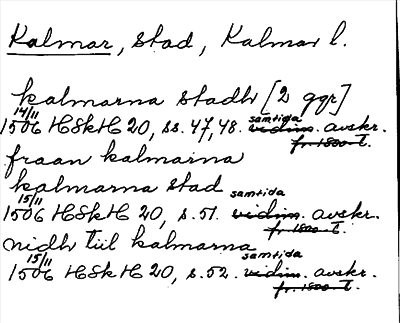 Kalmar, stad, Kalmar l.
kalmarna stadh [2 ggr]
14/11 samtida
1506 HSkH 20, ss. 47, 48. vidim. avskr.
fr. 1800-t.
fraan kalmarna
kalmarna stad
15/11 samtida
1506 HSkH 20, s. 51. vidim. avskr.
fr. 1800-t.
nidh till kalmarna
15/11 samtida
1506 HSkH 20, s. 52. vidim. avskr.
fr. 1800-t.